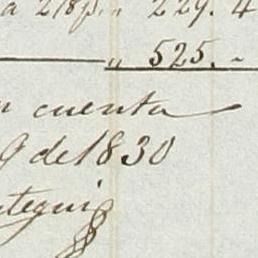 a 218p.. 229. 4
" 525. -
n cuenta
9 de 1830
ategui